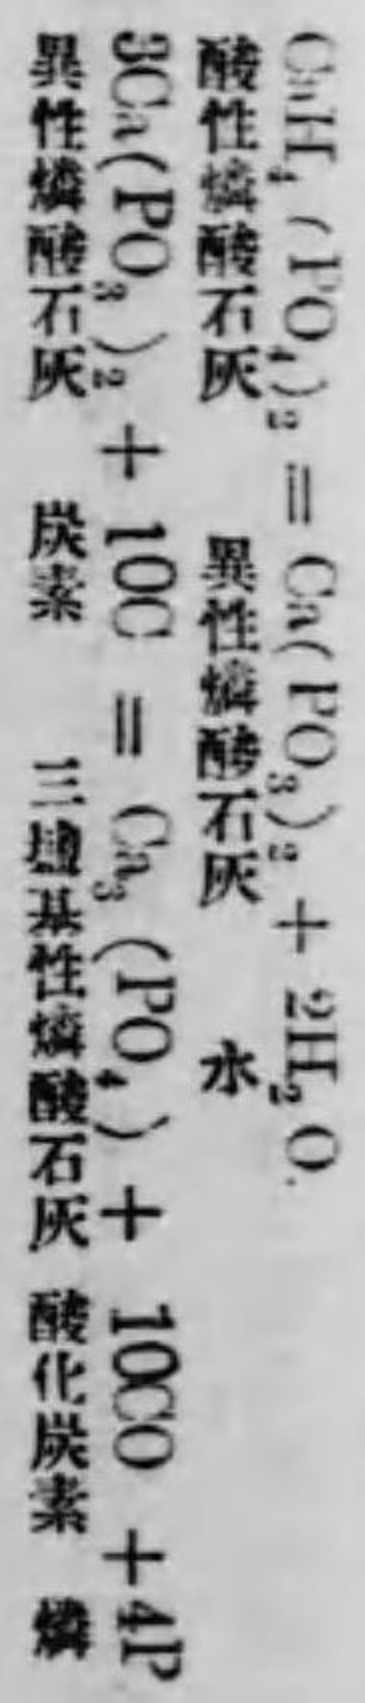 CaH₄(PO₄)₂ = Ca(PO₃)₂ + 2H₂O.
酸性燐酸石灰 異性燐酸石灰 水
3Ca(PO₃)₂ + 10C = Ca₃(PO₄) + 10CO + 4P
異性燐酸石灰 炭素 三塩基性燐酸石灰 酸化炭素 燐